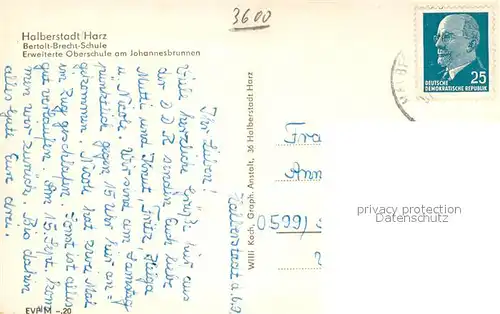 3600
Halberstadt Harz
Bertolt-Brecht-Schule
Erweiterte Oberschule am Johannesbrunnen
25
DEUTSCHE
DEMOKRATISCHE REPUBLIK
Halberstadt d. 6.9.
Ihr Lieben!
Viele herzliche Grüße hier aus
der DDR senden Euch liebe
Mutti und Fritz, Helga
u. Nicole. Wir sind am Samstag
pünktlich gegen 15 Uhr hier an=
gekommen. Nicole hat zwei Mal
im Zug geschlafen. Sonst ist alles
gut verlaufen. Am 15. Sept. kom=
men wir zurück. Bis dahin
alles Gute Eure drei.
Willi Koch, Graph. Anstalt, 36 Halberstadt Harz
Fra
Ann
(0599)
EVP M -.20
privacy protection
Datenschutz